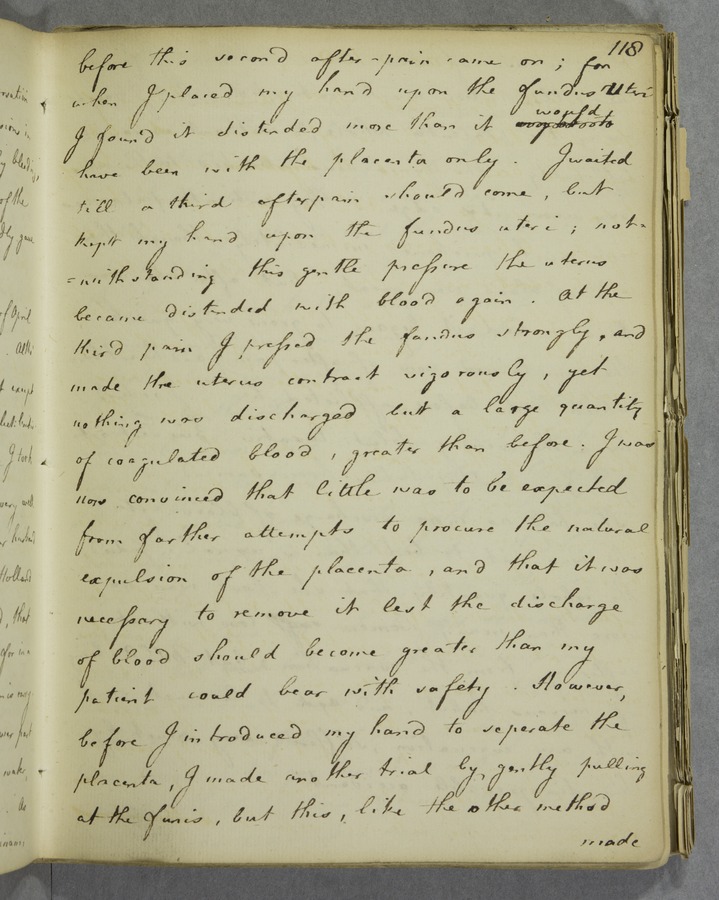 118
before this second after-pain came on ; for
when I placed my hand upon the fundus uteri
I found it distended more than it would
have been with the placenta only . I waited
till a third afterpain should come , but
kept my hand upon the fundus uteri ; not=
=withstanding this gentle pressure the uterus
became distended with blood again . At the
third pain I pressed the fundus strongly , and
made the uterus contract vigorously , yet
nothing was discharged but a large quantity
of coagulated blood , greater than before . I was
now convinced that little was to be expected
from farther attempts to procure the natural
expulsion of the placenta , and that it was
necessary to remove it lest the discharge
of blood should become greater than my
patient could bear with safety . However,
before I introduced my hand to seperate the
placenta , I made another trial by gently pulling
at the funis , but this , like the other method
made